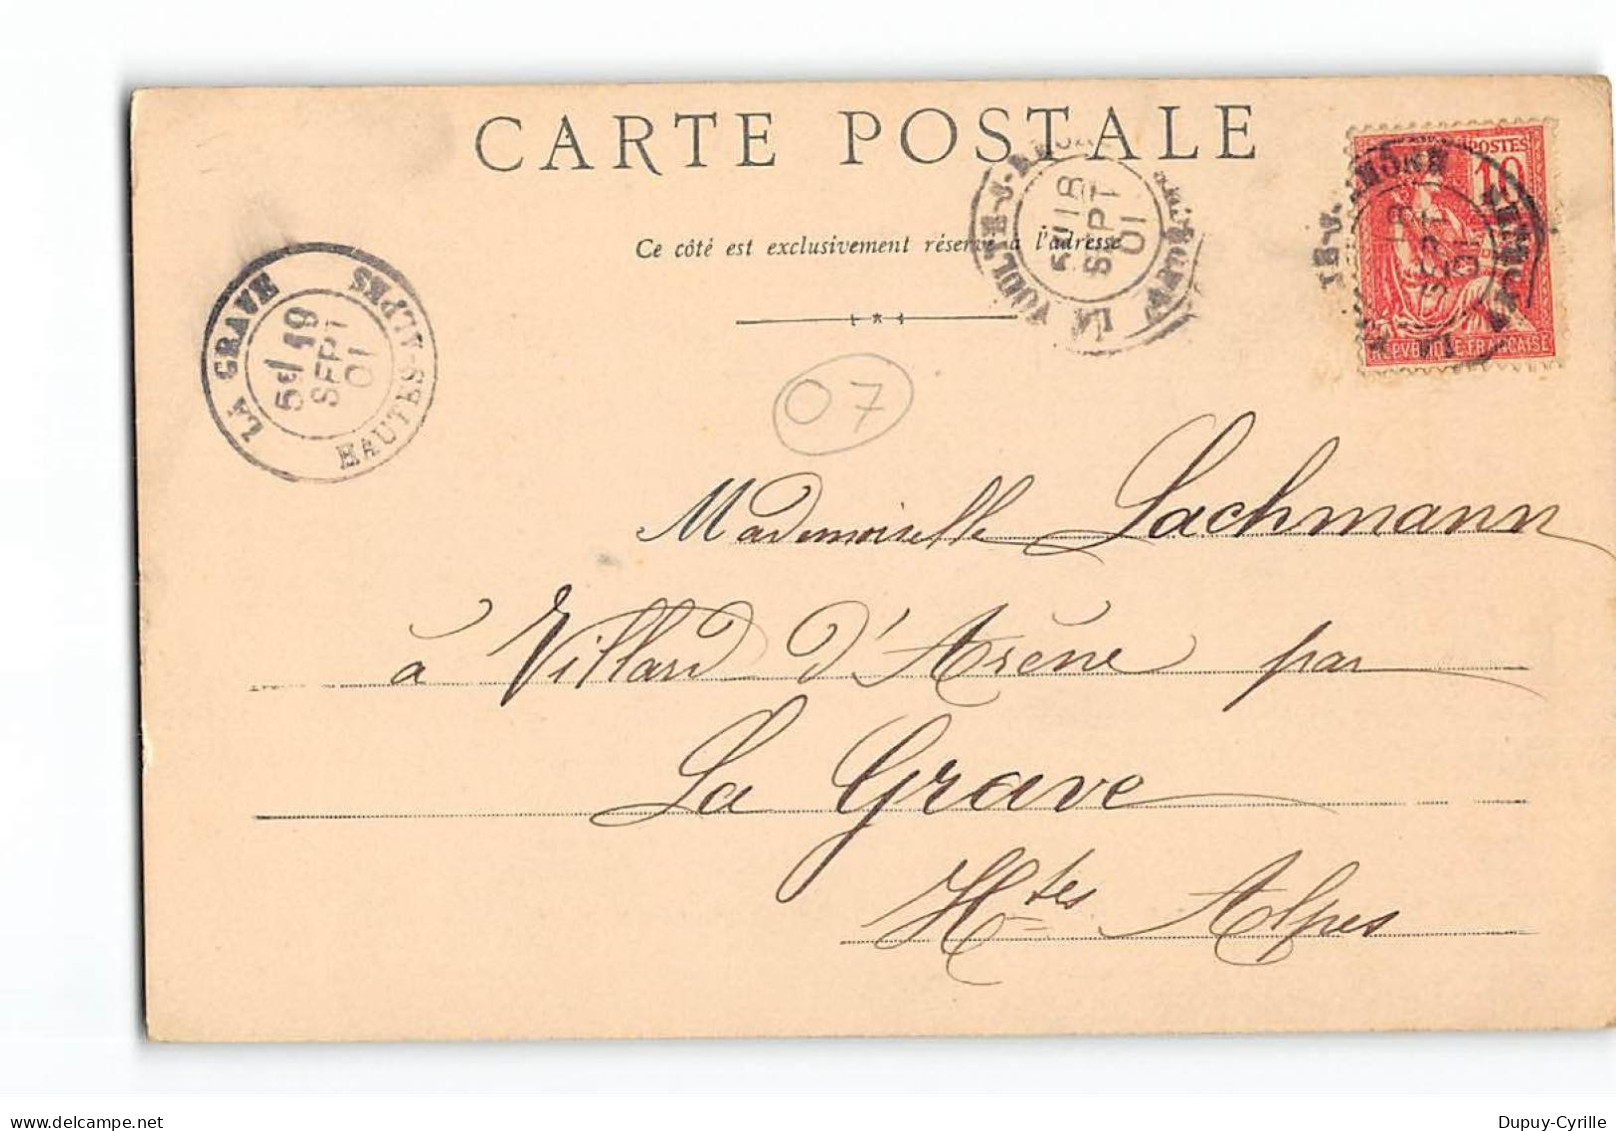 CARTE POSTALE
Ce côté est exclusivement réservé à l'adresse
LA VOULTE-S-RHONE
18
SEPT
01
ARDÈCHE
10
POSTES
REPVBLIQUE FRANÇAISE
LA GRAVE
5E/19
SEPT
01
HAUTES-ALPES
07
Mademoiselle Lachmann
à Villard d'Arène par
La Grave
Htes Alpes
Dupuy-Cyrille